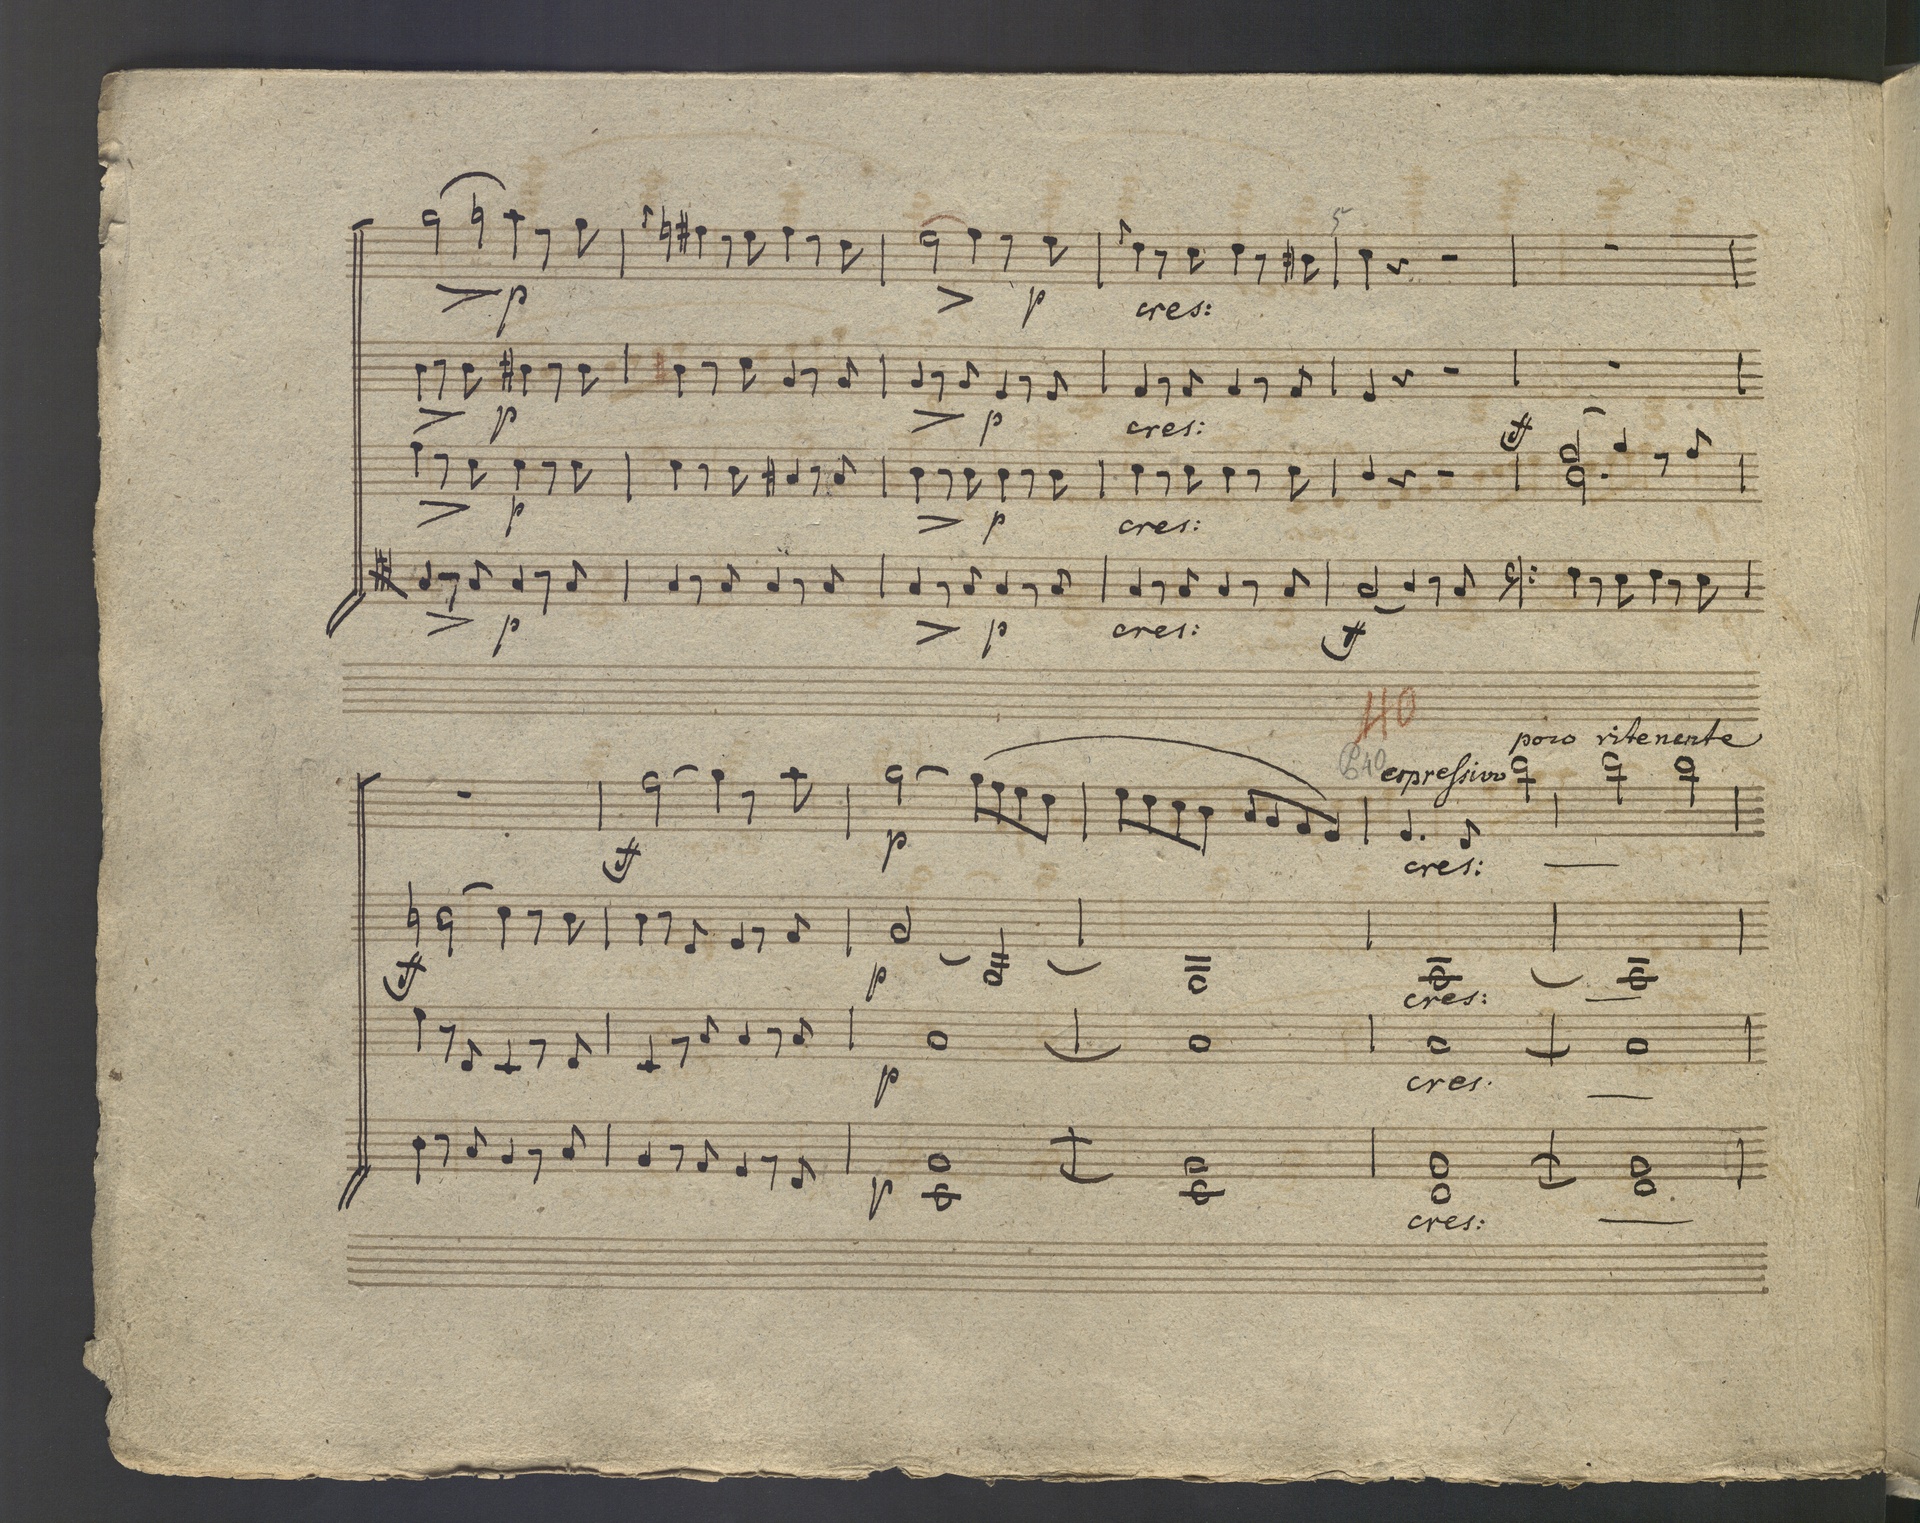 5
p p
cres:
p p
cres:
f
p p
cres:
p p
cres: f
40
poco ritenente
P.40 espressivo
f p cres:
f p cres:
p cres.
p cres: